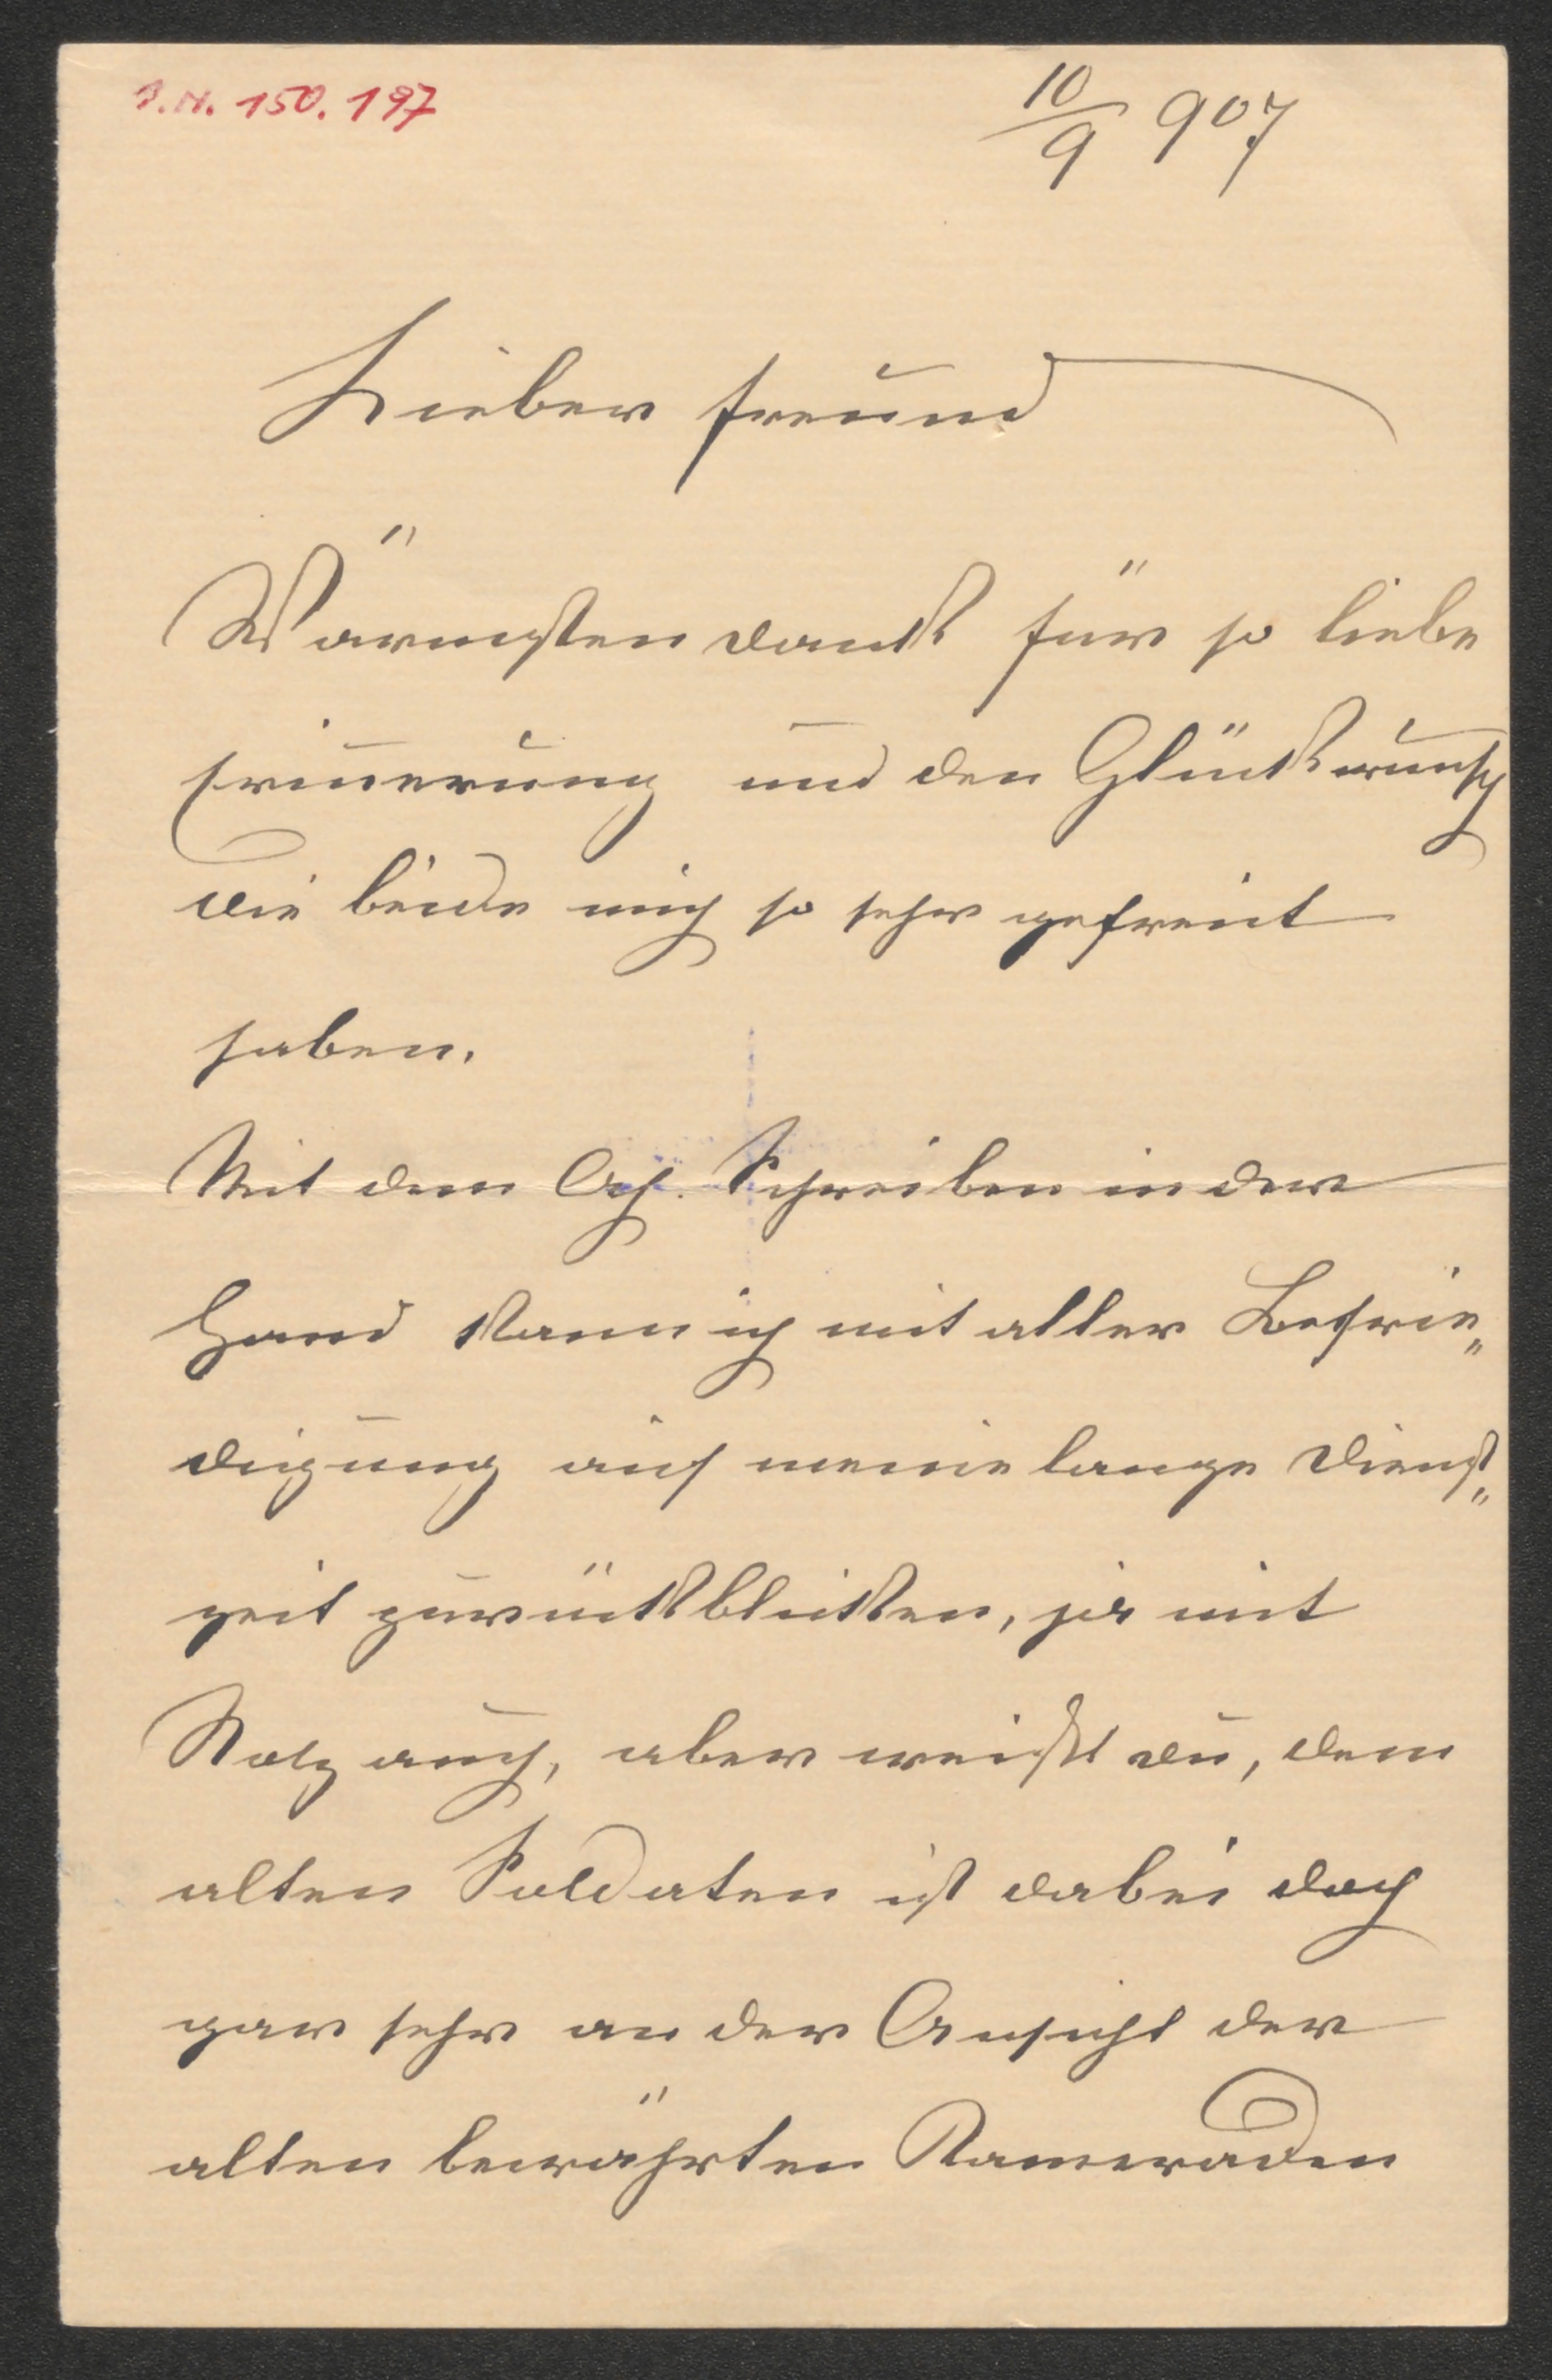 I.N. 150.197
10/9 907
Lieber Freund
Wärmsten Dank für so liebe
Erinnerung und den Glückwunsch
die beide mich so sehr gefreut
haben.
Mit dem Ah. Schreiben in der
Hand kann ich mit aller Befrie„
digung auf meine lange Dienst„
zeit zurückblicken, ja mit
Stolz auch, aber weißt du, dem
alten Soldaten ist dabei doch
gar sehr an der Ansicht der
alten bewährten Kameraden